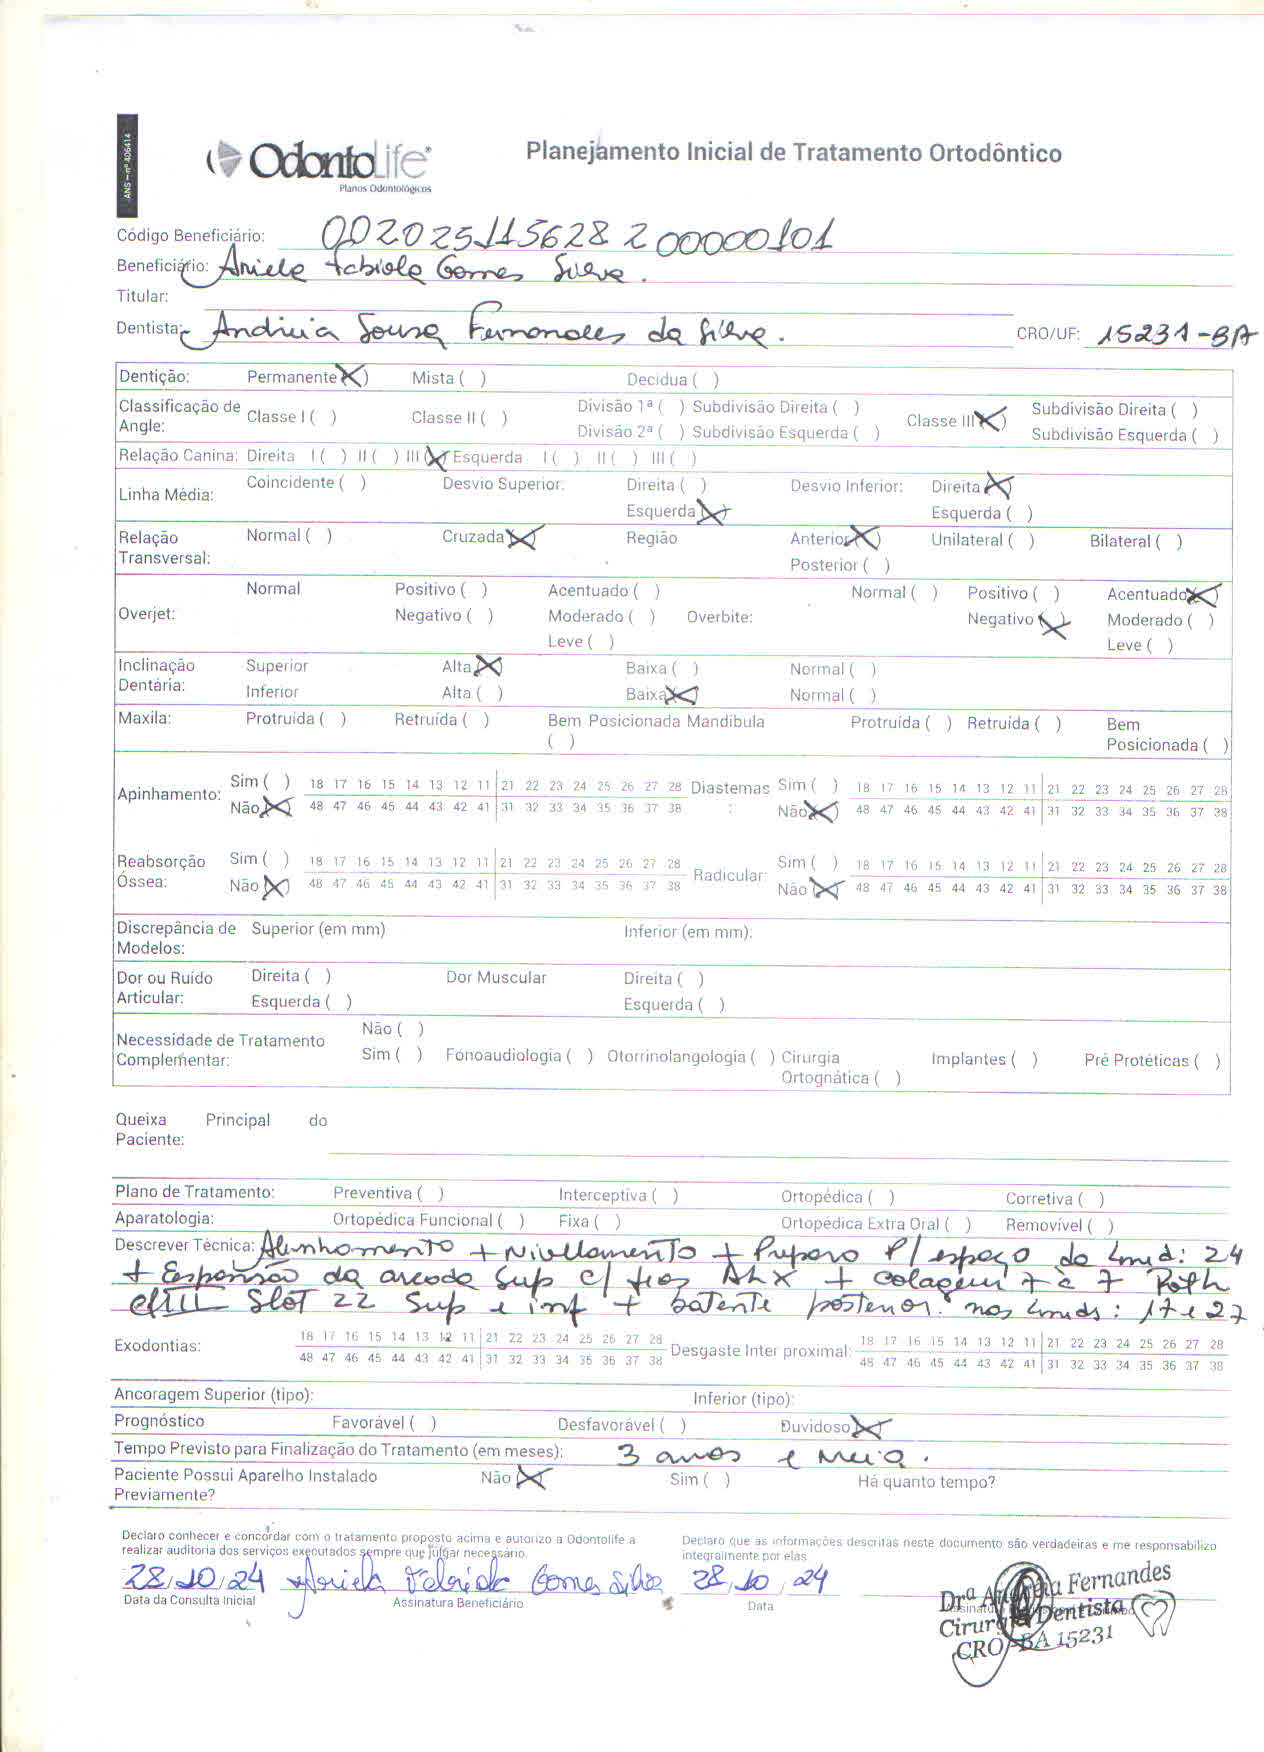 ANS - nº 406414
OdontoLife
Planos Odontológicos
Planejamento Inicial de Tratamento Ortodôntico
Código Beneficiário: 002025115628200000101
Beneficiário: Ariela Fabiola Gomes Silva.
Titular:
Dentista: Andréia Sousa Fernandes da Silva. CRO/UF: 15231-BA
Dentição: Permanente (X) Mista ( ) Decídua ( )
Classificação de Angle: Classe I ( ) Classe II ( ) Divisão 1ª ( ) Subdivisão Direita ( ) Classe III (X) Subdivisão Direita ( )
Divisão 2ª ( ) Subdivisão Esquerda ( ) Subdivisão Esquerda ( )
Relação Canina: Direita I ( ) II ( ) III (X) Esquerda I ( ) II ( ) III ( )
Linha Média: Coincidente ( ) Desvio Superior: Direita ( ) Desvio Inferior: Direita (X)
Esquerda (X) Esquerda ( )
Relação Transversal: Normal ( ) Cruzada (X) Região Anterior (X) Unilateral ( ) Bilateral ( )
Posterior ( )
Overjet: Normal Positivo ( ) Acentuado ( ) Normal ( ) Positivo ( ) Acentuado (X)
Negativo ( ) Moderado ( ) Overbite: Negativo (X) Moderado ( )
Leve ( ) Leve ( )
Inclinação Dentária: Superior Alta (X) Baixa ( ) Normal ( )
Inferior Alta ( ) Baixa (X) Normal ( )
Maxila: Protruída ( ) Retruída ( ) Bem Posicionada ( ) Mandibula Protruída ( ) Retruída ( ) Bem Posicionada ( )
Apinhamento: Sim ( ) 18 17 16 15 14 13 12 11 21 22 23 24 25 26 27 28 Diastemas : Sim ( ) 18 17 16 15 14 13 12 11 21 22 23 24 25 26 27 28
Não (X) 48 47 46 45 44 43 42 41 31 32 33 34 35 36 37 38 Não (X) 48 47 46 45 44 43 42 41 31 32 33 34 35 36 37 38
Reabsorção Óssea: Sim ( ) 18 17 16 15 14 13 12 11 21 22 23 24 25 26 27 28 Radicular: Sim ( ) 18 17 16 15 14 13 12 11 21 22 23 24 25 26 27 28
Não (X) 48 47 46 45 44 43 42 41 31 32 33 34 35 36 37 38 Não (X) 48 47 46 45 44 43 42 41 31 32 33 34 35 36 37 38
Discrepância de Modelos: Superior (em mm) Inferior (em mm):
Dor ou Ruído Articular: Direita ( ) Dor Muscular Direita ( )
Esquerda ( ) Esquerda ( )
Necessidade de Tratamento Complementar: Não ( )
Sim ( ) Fonoaudiologia ( ) Otorrinolangologia ( ) Cirurgia Ortognática ( ) Implantes ( ) Pré Protéticas ( )
Queixa Principal do Paciente:
Plano de Tratamento: Preventiva ( ) Interceptiva ( ) Ortopédica ( ) Corretiva ( )
Aparatologia: Ortopédica Funcional ( ) Fixa ( ) Ortopédica Extra Oral ( ) Removível ( )
Descrever Técnica: Alinhamento + Nivelamento + Preparo P/ espaço do Unid: 24
+ Expansão da arcada Sup c/ fios + Colagem 7 à 7 Roth
Slot 22 Sup e inf + batente posterior nos Unids: 17 e 27
Exodontias: 18 17 16 15 14 13 12 11 21 22 23 24 25 26 27 28 Desgaste Inter proximal: 18 17 16 15 14 13 12 11 21 22 23 24 25 26 27 28
48 47 46 45 44 43 42 41 31 32 33 34 35 36 37 38 48 47 46 45 44 43 42 41 31 32 33 34 35 36 37 38
Ancoragem Superior (tipo): Inferior (tipo):
Prognóstico Favorável ( ) Desfavorável ( ) Duvidoso (X)
Tempo Previsto para Finalização do Tratamento (em meses): 3 anos e meio.
Paciente Possui Aparelho Instalado Previamente? Não (X) Sim ( ) Há quanto tempo?
Declaro conhecer e concordar com o tratamento proposto acima e autorizo a Odontolife a
realizar auditoria dos serviços executados sempre que julgar necessário.
Declaro que as informações descritas neste documento são verdadeiras e me responsabilizo
integralmente por elas
28/10/24 Ariela Fabiola Gomes Silva 28/10/24
Data da Consulta Inicial Assinatura Beneficiário Data
Drª Andréia Fernandes
Cirurgiã Dentista
CRO-BA 15231